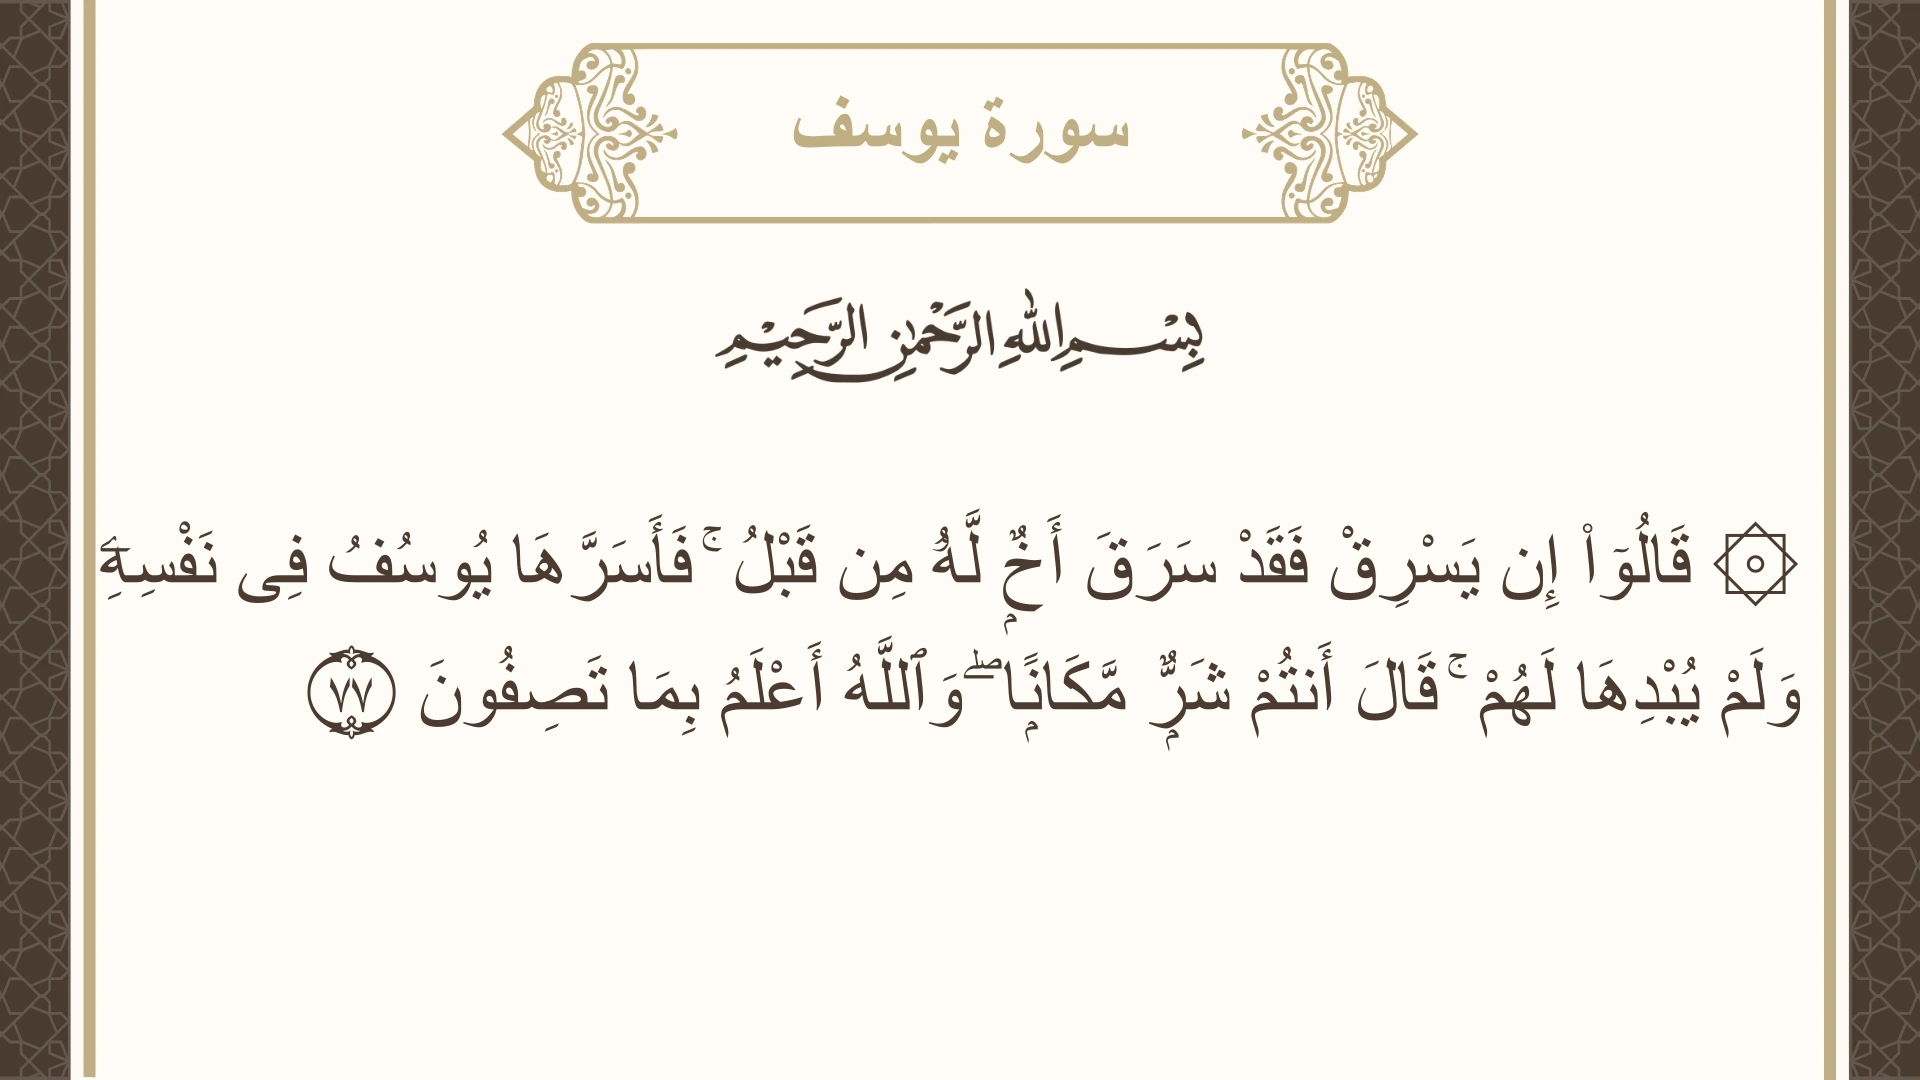 سورة يوسف
بِسْمِ اللهِ الرَّحْمٰنِ الرَّحِيْمِ
۞ قَالُوٓا۟ إِن يَسْرِقْ فَقَدْ سَرَقَ أَخٌۭ لَّهُۥ مِن قَبْلُ ۚ فَأَسَرَّهَا يُوسُفُ فِى نَفْسِهِۦ
وَلَمْ يُبْدِهَا لَهُمْ ۚ قَالَ أَنتُمْ شَرٌّۭ مَّكَانًۭا ۖ وَٱللَّهُ أَعْلَمُ بِمَا تَصِفُونَ ٧٧